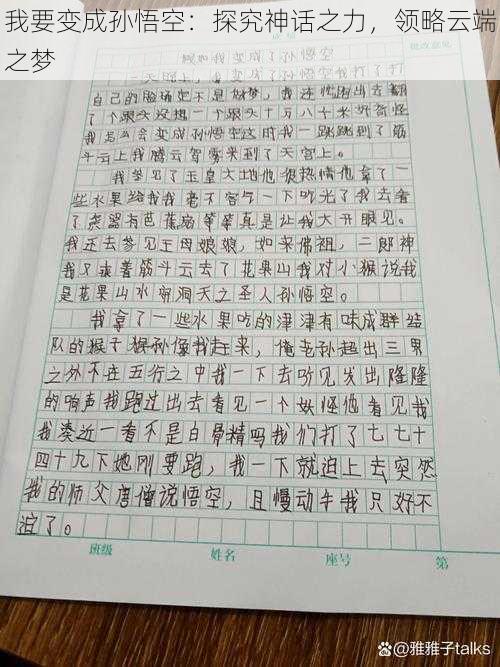 我要变成孙悟空：探究神话之力，领略云端
之梦
假如我变成了孙悟空
一天晚上，我变成了孙悟空我打了打
自己的脸确定不是做梦，我连忙跑出去翻
了个跟头没想一个跟头十万八千米好奇怪
我怎么会变成孙悟空这时我一跳跳到了筋
斗云上我腾云驾雾来到了天宫上。
我参见了玉皇大地他很热情他拿了一
些水果给我我毫不客气一下吃光了我去看
了兵器有芭蕉扇等等真是让我大开眼见。
我还去参见王母娘娘，如来佛祖，二郎神
我又乘着筋斗云去了花果山我对小猴说我
是花果山水帘洞天之圣人孙悟空。
我拿了一些水果吃的津津有味成群结
队的猴子猴孙像我赶来，俺老孙超出三界
之外不在五行之中我一下去听见发出隆隆
的响声我跑过出去看见一个妖怪他看见我
我凑近一看不是白骨精吗我们打了七七十
四十九下她刚要跑，我一下就迫上去突然
我的师父唐僧说悟空，且慢动手我只好不
追了。
班级
姓名
座号
第
批改意见
@雅雅子talks